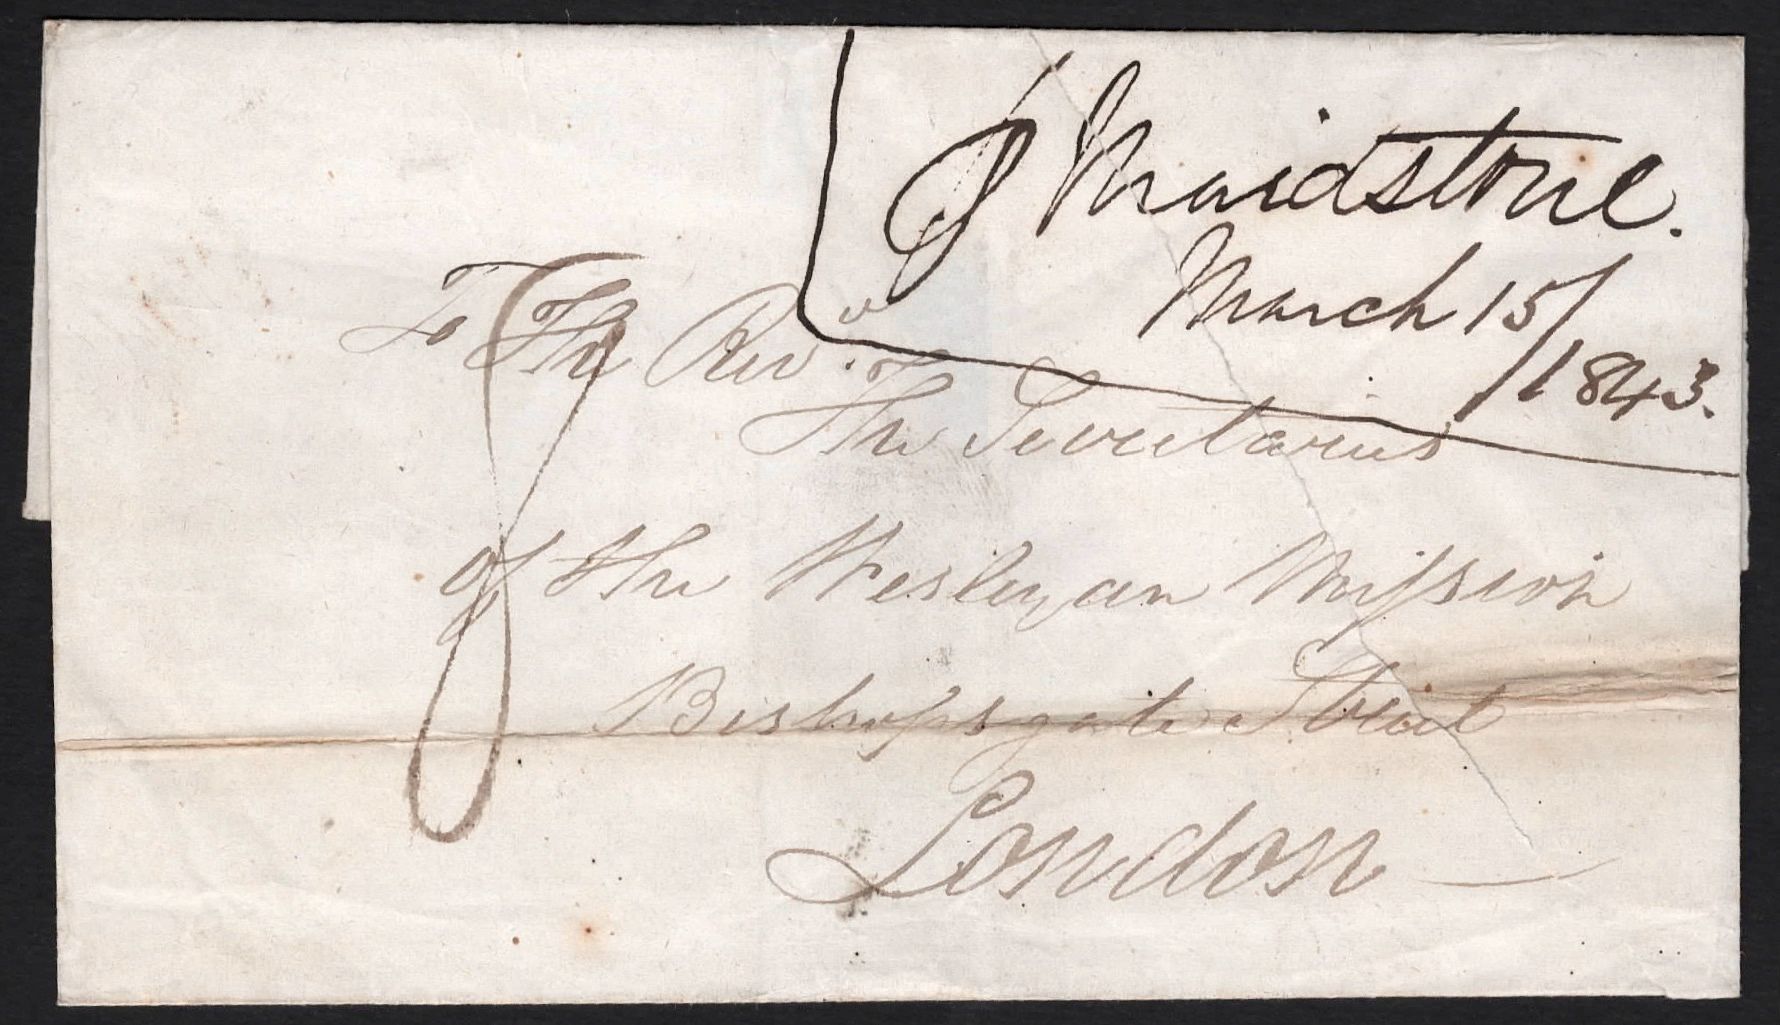 J Maidstone.
March 15/
1843.
To The Revd.
The Secretaries
of the Wesleyan Mission
Bishopsgate Street
London